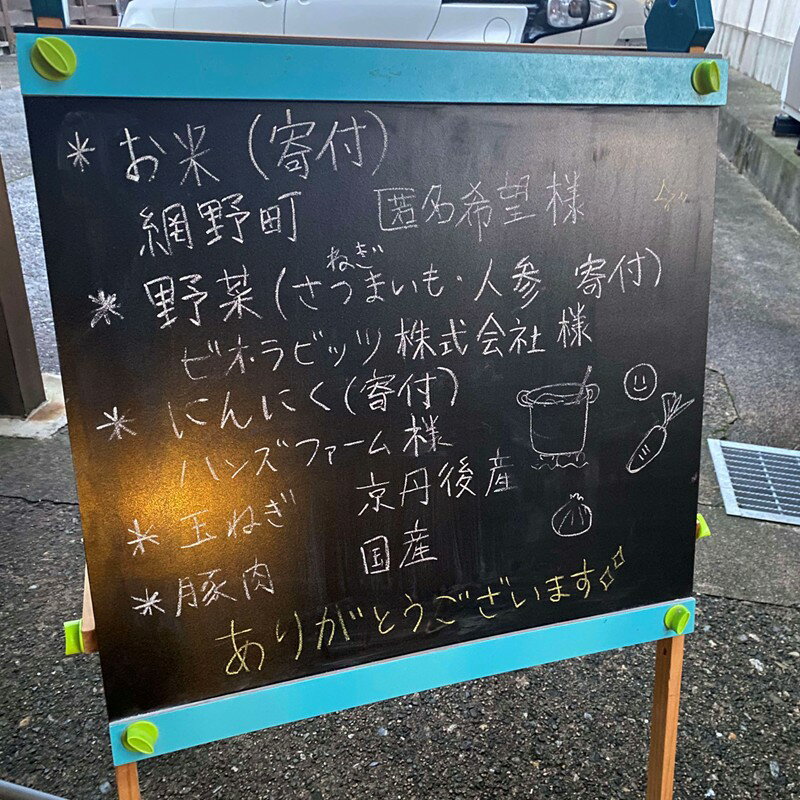 * お米（寄付）
網野町 匿名希望様
ねぎ
* 野菜（さつまいも・人参 寄付）
ビオ・ラビッツ株式会社様
* にんにく（寄付）
ハンズファーム様
* 玉ねぎ 京丹後産
* 豚肉 国産
ありがとうございます